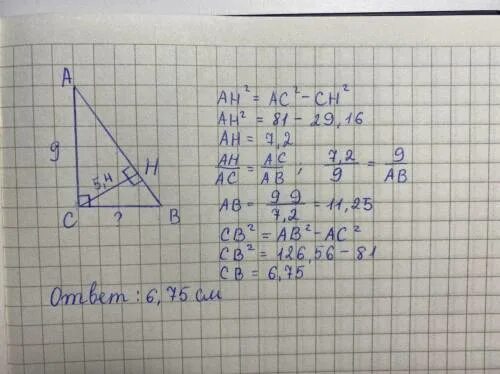 A
9
5,4
H
C
?
B
AH² = AC² - CH²
AH² = 81 - 29,16
AH = 7,2
AH/AC = AC/AB ; 7,2/9 = 9/AB
AB = 9 9/7,2 = 11,25
CB² = AB² - AC²
CB² = 126,56 - 81
CB = 6,75
Ответ : 6,75 см